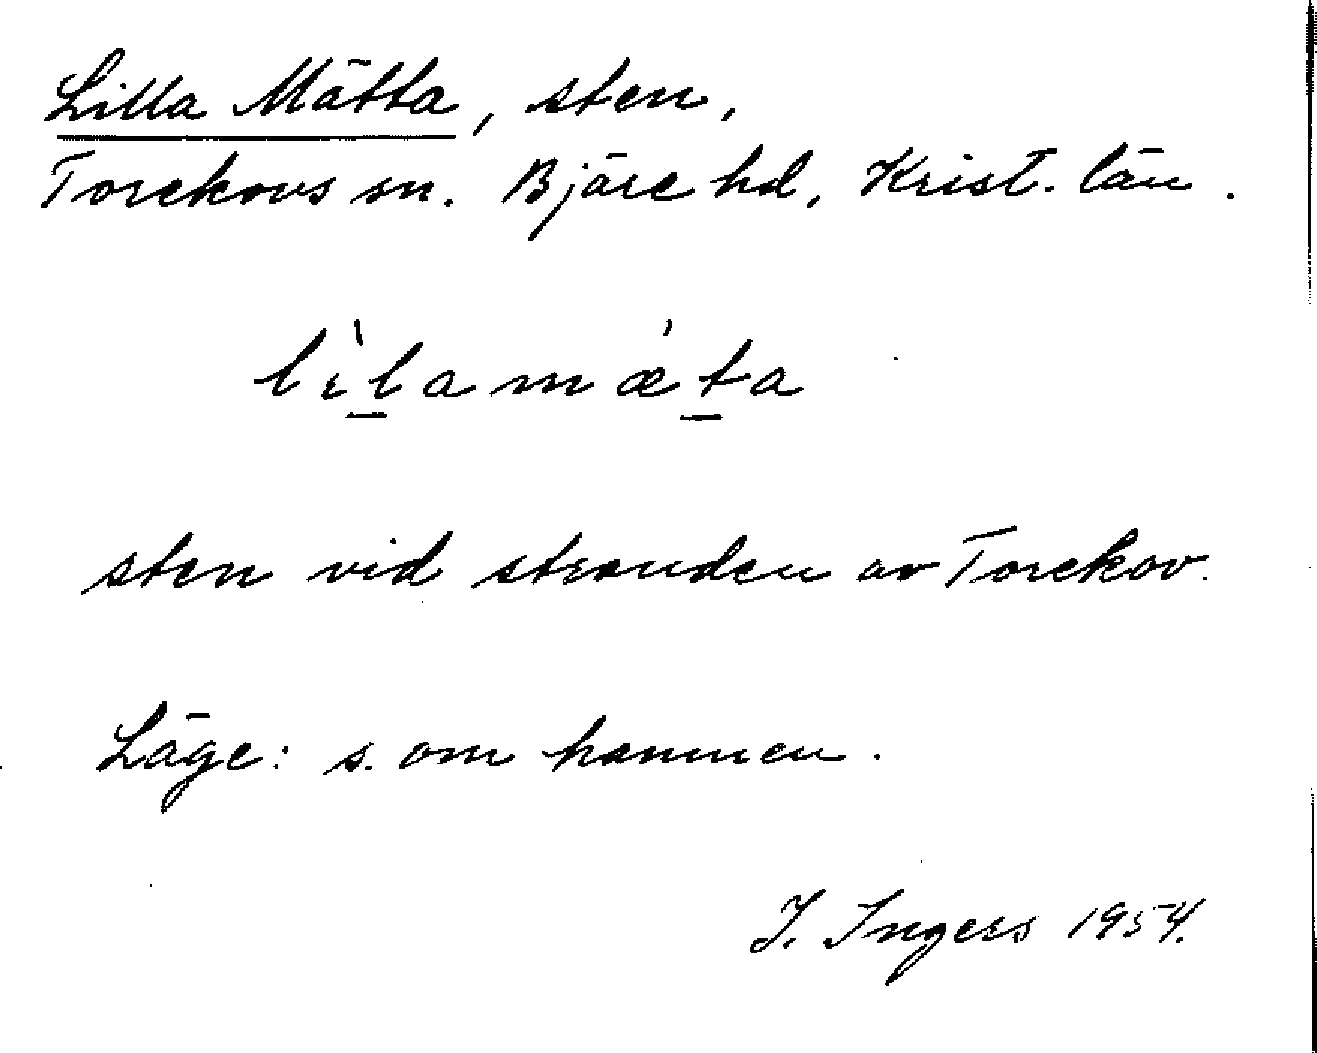 Lilla Mätta, sten,
Torekovs sn. Bjäre hd, Krist. län.
lìl̲amǽt̲a
sten vid stranden av Torekov.
Läge: s. om hamnen.
I. Ingers 1954.